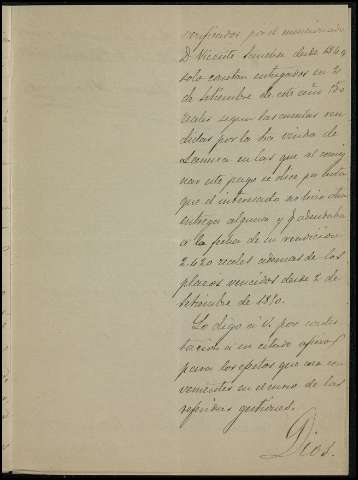 verificados por el mencionado
D. Vicente Sanchez desde 1849
solo constan entregados en 2
de Setiembre de este año 750
reales segun las cuentas ren
didas por la
en las que al consig
nar este pago se dice
que el interesado no tenia
entrega alguna y q. adeudaba
a la fecha de su rendicion
2.420 reales ademas de los
plazos vencidos desde 2 de
Setiembre de 1870.
Lo digo á V. por contes
tacion á su citado oficio
para los efectos que crea con
venientes en el curso de las
referidas gestiones.
Dios.